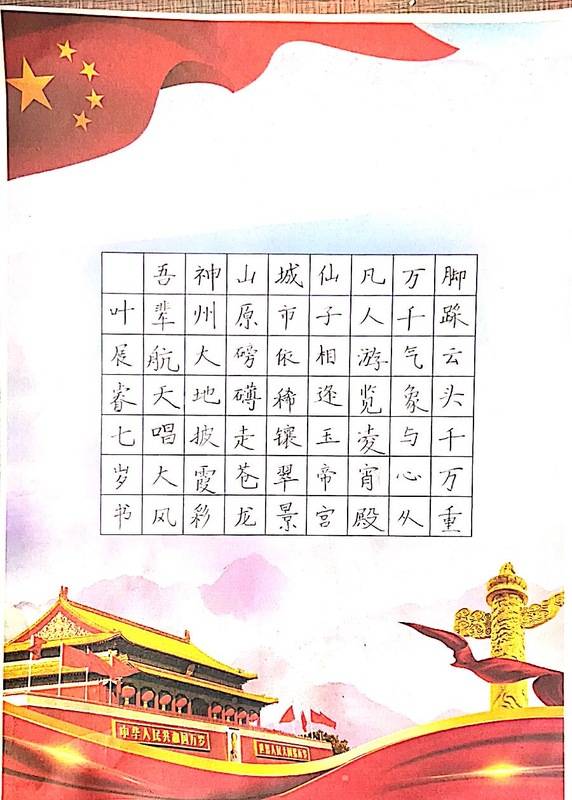 脚踩云头千万重
万千气象与心从
凡人游览凌宵殿
仙子相逢玉帝宫
城市依稀镶翠景
山原磅礴走苍龙
神州大地披霞彩
吾辈航天唱大风
叶展睿七岁书
中华人民共和国万岁
世界人民大团结万岁